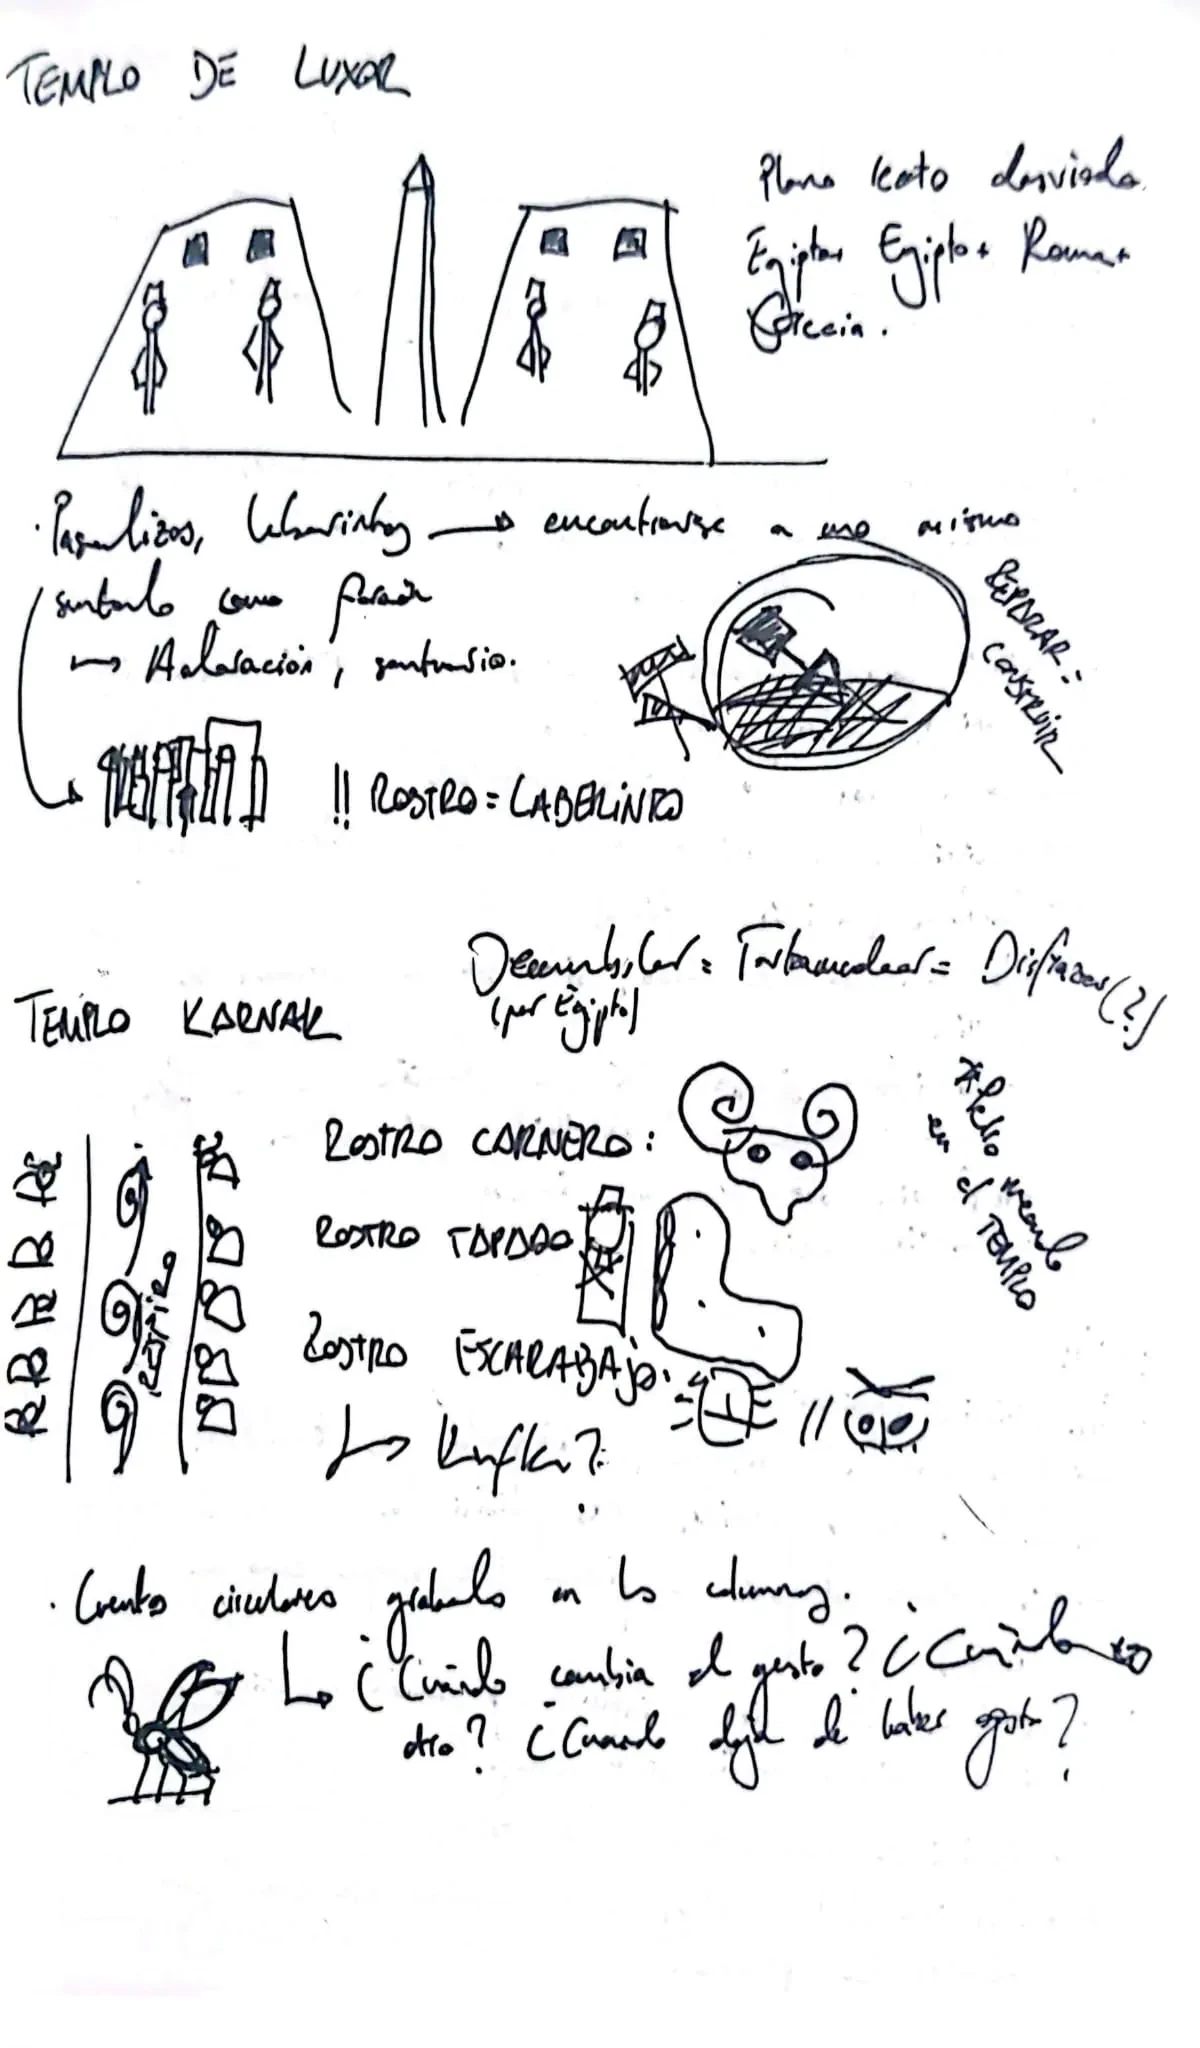 TEMPLO DE LUXOR
Plano recto desviado.
Egipto+ Egipto+ Roma+
Grecia.
· Pasadizos, laberintos → encontrarse a uno mismo
sentado como faraón
→ Adoración, santuario.
REPARAR =
CONSTRUIR
!! ROSTRO = LABERINTO
Deambular = = Disfraces(?)
(por Egipto)
TEMPLO KARNAK
ROSTRO CARNERO:
ROSTRO TAPADO
ROSTRO ESCARABAJO.
↳ Kafka?
en el TEMPLO
· Cuentos circulares grabados en las columnas.
↳ ¿Cuándo cambia el gesto? ¿Cuándo es
otro? ¿Cuando deja de haber gesto?